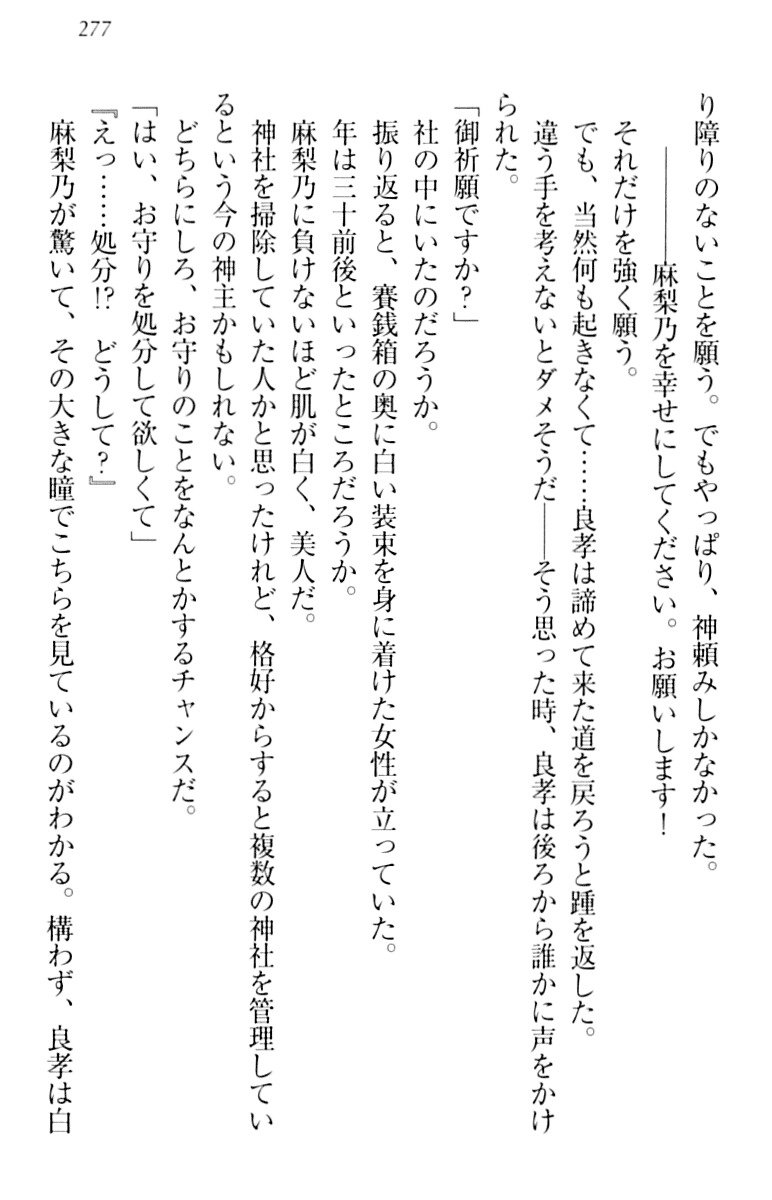 277
り障りのないことを願う。でもやっぱり、神頼みしかなかった。
――――麻梨乃を幸せにしてください。お願いします！
それだけを強く願う。
でも、当然何も起きなくて……良孝は諦めて来た道を戻ろうと踵を返した。
違う手を考えないとダメそうだ――そう思った時、良孝は後ろから誰かに声をかけ
られた。
「御祈願ですか？」
社の中にいたのだろうか。
振り返ると、賽銭箱の奥に白い装束を身に着けた女性が立っていた。
年は三十前後といったところだろうか。
麻梨乃に負けないほど肌が白く、美人だ。
神社を掃除していた人かと思ったけれど、格好からすると複数の神社を管理してい
るという今の神主かもしれない。
どちらにしろ、お守りのことをなんとかするチャンスだ。
「はい、お守りを処分して欲しくて」
『えっ……処分!?　どうして？』
麻梨乃が驚いて、その大きな瞳でこちらを見ているのがわかる。構わず、良孝は白